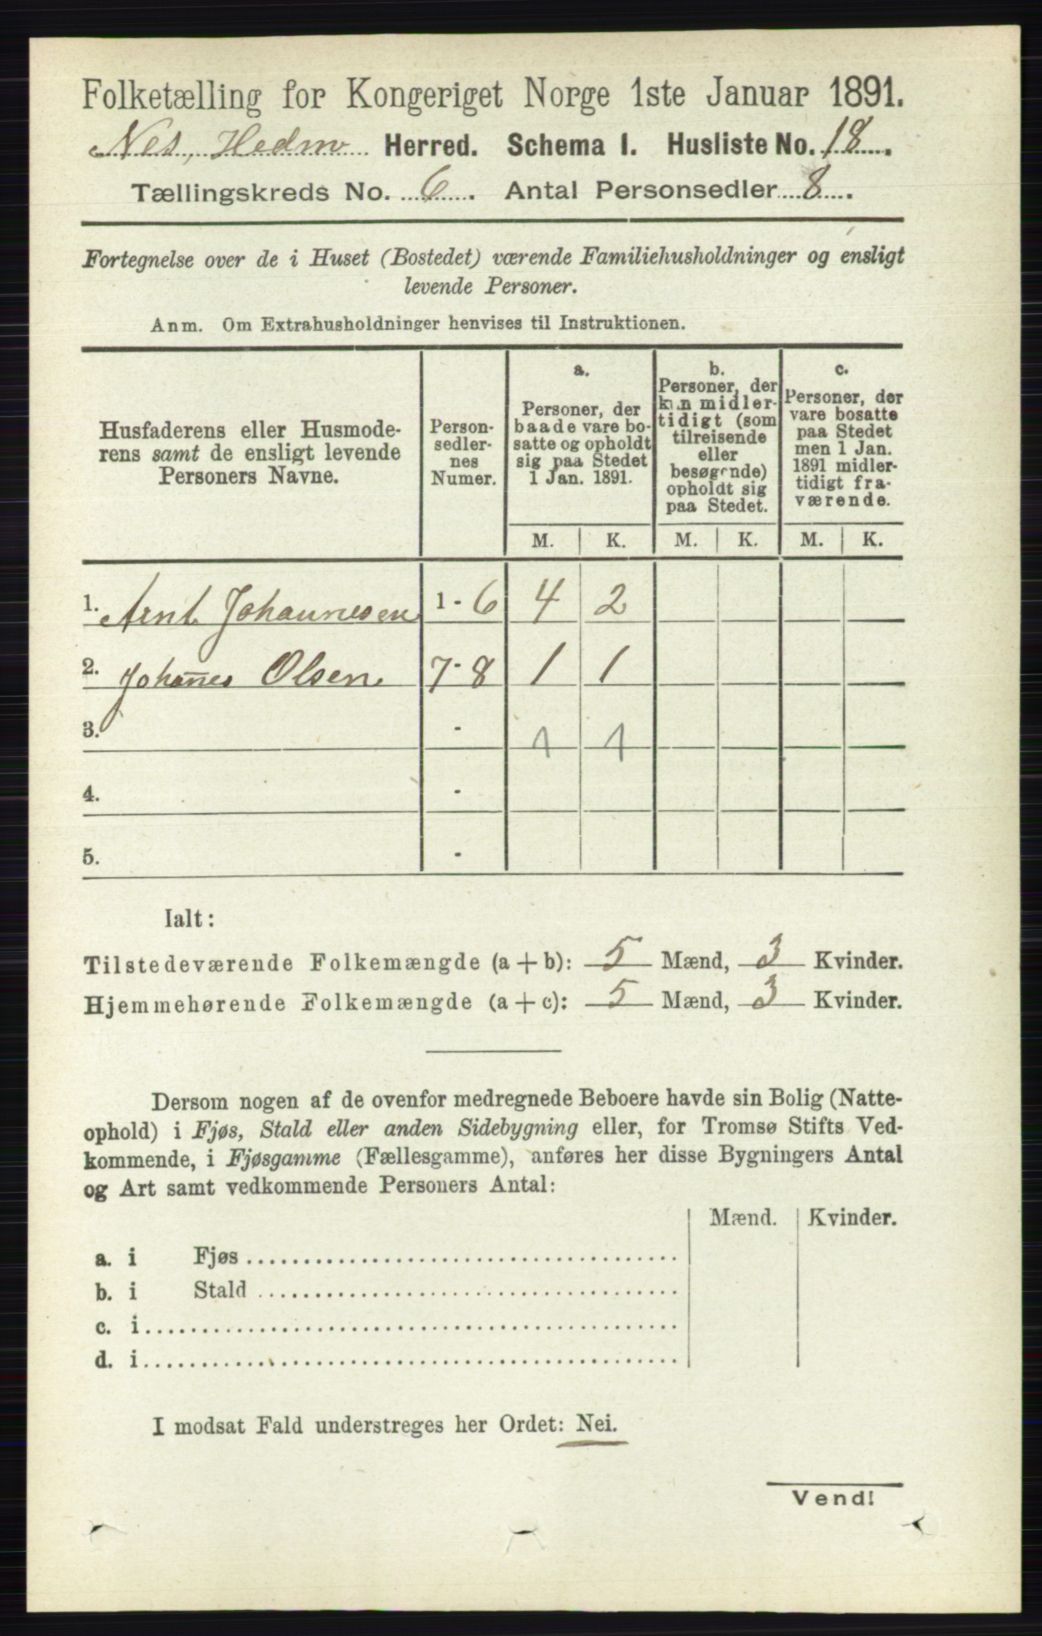 Folketælling for Kongeriget Norge 1ste Januar 1891.
Nes, Hedm Herred. Schema I. Husliste No. 18.
Tællingskreds No. 6. Antal Personsedler 8.
Fortegnelse over de i Huset (Bostedet) værende Familiehusholdninger og ensligt
levende Personer.
Anm. Om Extrahusholdninger henvises til Instruktionen.
Husfaderens eller Husmode-
rens samt de ensligt levende
Personers Navne.
Person-
sedler-
nes
Numer.
a.
Personer, der
baade vare bo-
satte og opholdt
sig paa Stedet
1 Jan. 1891.
b.
Personer, der
kun midler-
tidigt (som
tilreisende
eller
besøgende)
opholdt sig
paa Stedet.
c.
Personer, der
vare bosatte
paa Stedet
men 1 Jan.
1891 midler-
tidigt fra-
værende.
M. K. M. K. M. K.
1. Arnt Johannesen 1 - 6 4 2
2. Johannes Olsen 7 - 8 1 1
3. - 1 1
4. -
5. -
Ialt:
Tilstedeværende Folkemængde (a + b): 5 Mænd, 3 Kvinder.
Hjemmehørende Folkemængde (a + c): 5 Mænd, 3 Kvinder.
Dersom nogen af de ovenfor medregnede Beboere havde sin Bolig (Natte-
ophold) i Fjøs, Stald eller anden Sidebygning eller, for Tromsø Stifts Ved-
kommende, i Fjøsgamme (Fællesgamme), anføres her disse Bygningers Antal
og Art samt vedkommende Personers Antal:
Mænd. Kvinder.
a. i Fjøs
b. i Stald
c. i
d. i
I modsat Fald understreges her Ordet: Nei.
Vend!